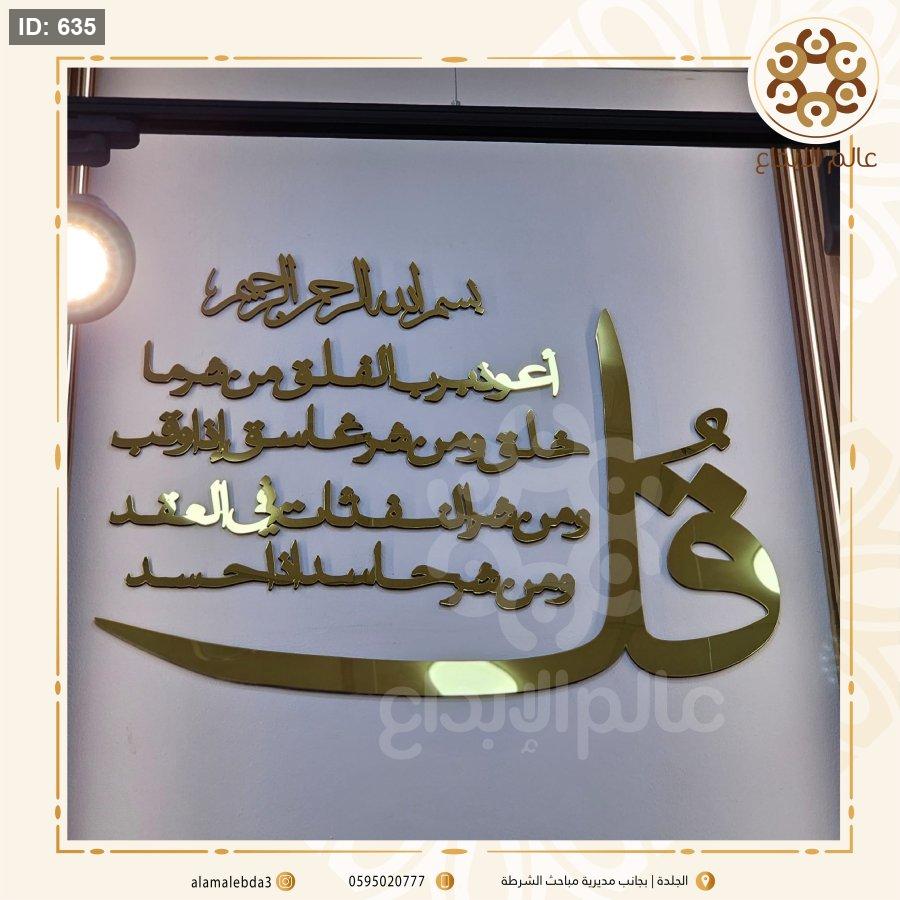 ID: 635
عالم الإبداع
بسم الله الرحمن الرحيم
قُل
أعوذ برب الفلق من شر ما
خلق ومن شر غاسق إذا وقب
ومن شر النفثات في العقد
ومن شر حاسد اذا حسد
عالم الإبداع
الجلدة | بجانب مديرية مباحث الشرطة
0595020777
alamalebda3